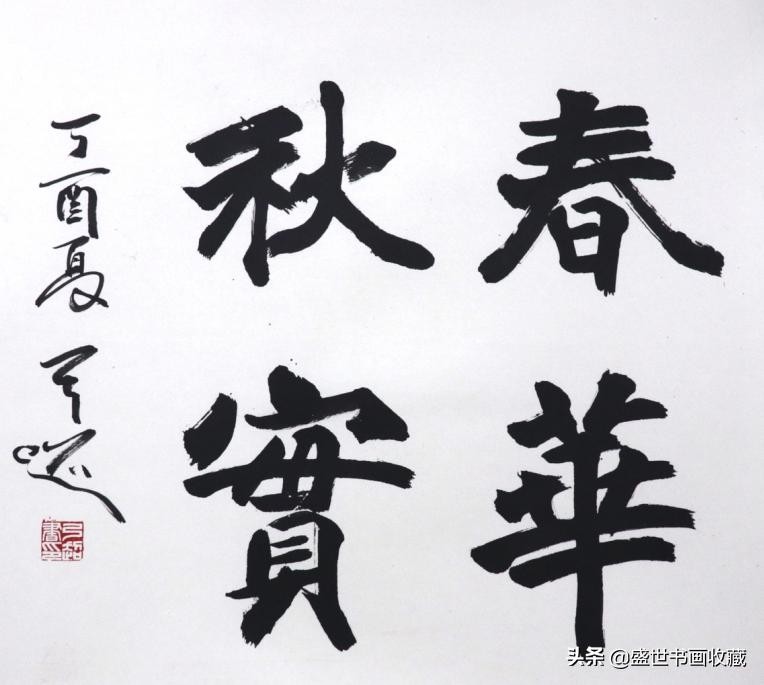 春華
秋實
丁酉夏
头条 @盛世书画收藏